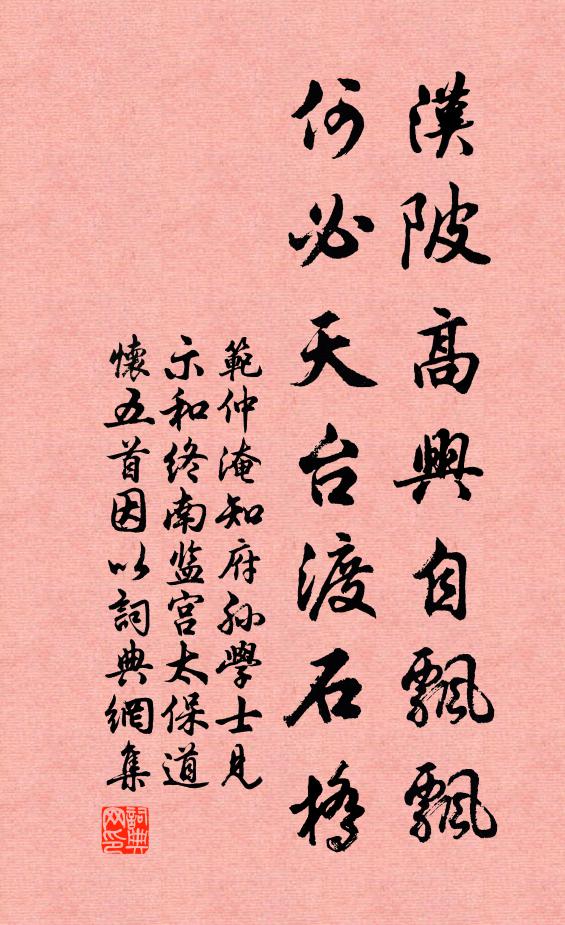 漢陂高興自飄飄
何必天台渡石橋
範仲淹知府孙學士見
示和终南监宫太保道
懷五首因以詞典網集
詞典
网印